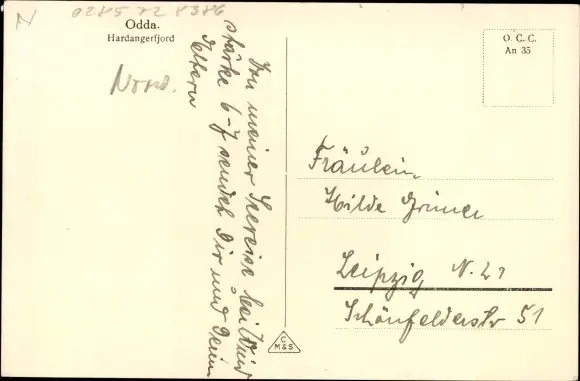 N 0285 72 8386
Odda.
Hardangerfjord
Nord.
O. C. C.
An 35
Von meiner Seereise bei Wind
stärke 6-7 sendet Dir und Deinen
Eltern
Fräulein
Hilde Grüner
Leipzig N. 21
Schönfelderstr 51
C
M&S